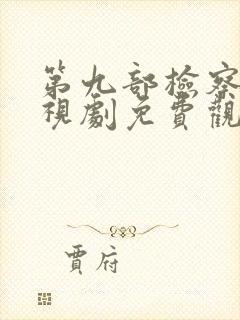 第九部檢察
視劇免費觀
賈府